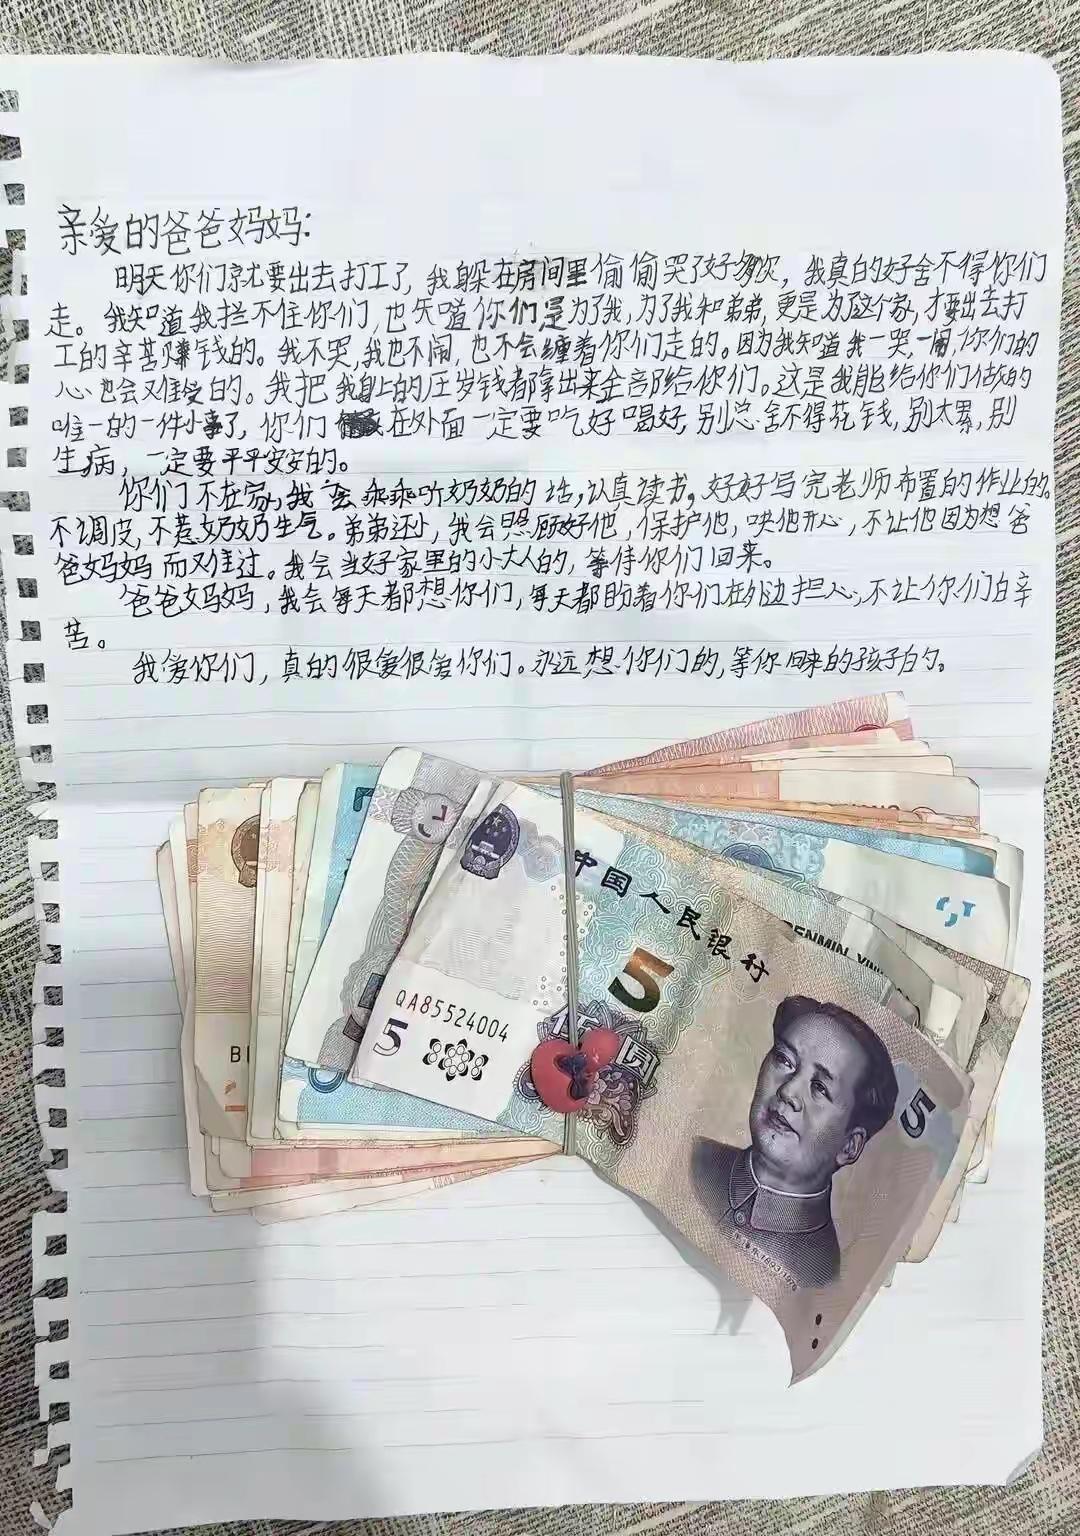 亲爱的爸爸妈妈:
明天你们就要出去打工了,我躲在房间里偷偷哭了好多次,我真的好舍不得你们
走。我知道我拦不住你们,也知道你们是为了我,为了我和弟弟,更是为了这个家,才要出去打
工的辛苦赚钱的。我不哭,我也不闹,也不会缠着你们走的。因为我知道我一哭,一闹,你们的
心也会又难受的。我把我身上的压岁钱都拿出来全部给你们。这是我能给你们做的
唯一的一件小事了,你们在外面一定要吃好喝好,别总舍不得花钱,别太累,别
生病,一定要平平安安的。
你们不在家,我会乖乖听奶奶的话,认真读书,好好写完老师布置的作业的。
不调皮,不惹奶奶生气。弟弟还小,我会照顾好他,保护他,哄他开心,不让他因为想爸
爸妈妈而又难过。我会当好家里的小大人的,等待你们回来。
爸爸妈妈,我会每天都想你们,每天都盼着你们在外边担心,不让你们白辛
苦。
我爱你们,真的很爱很爱你们。永远想你们的,等你回来的孩子的。
中国人民银行
5
QA85524004
5
圆
5